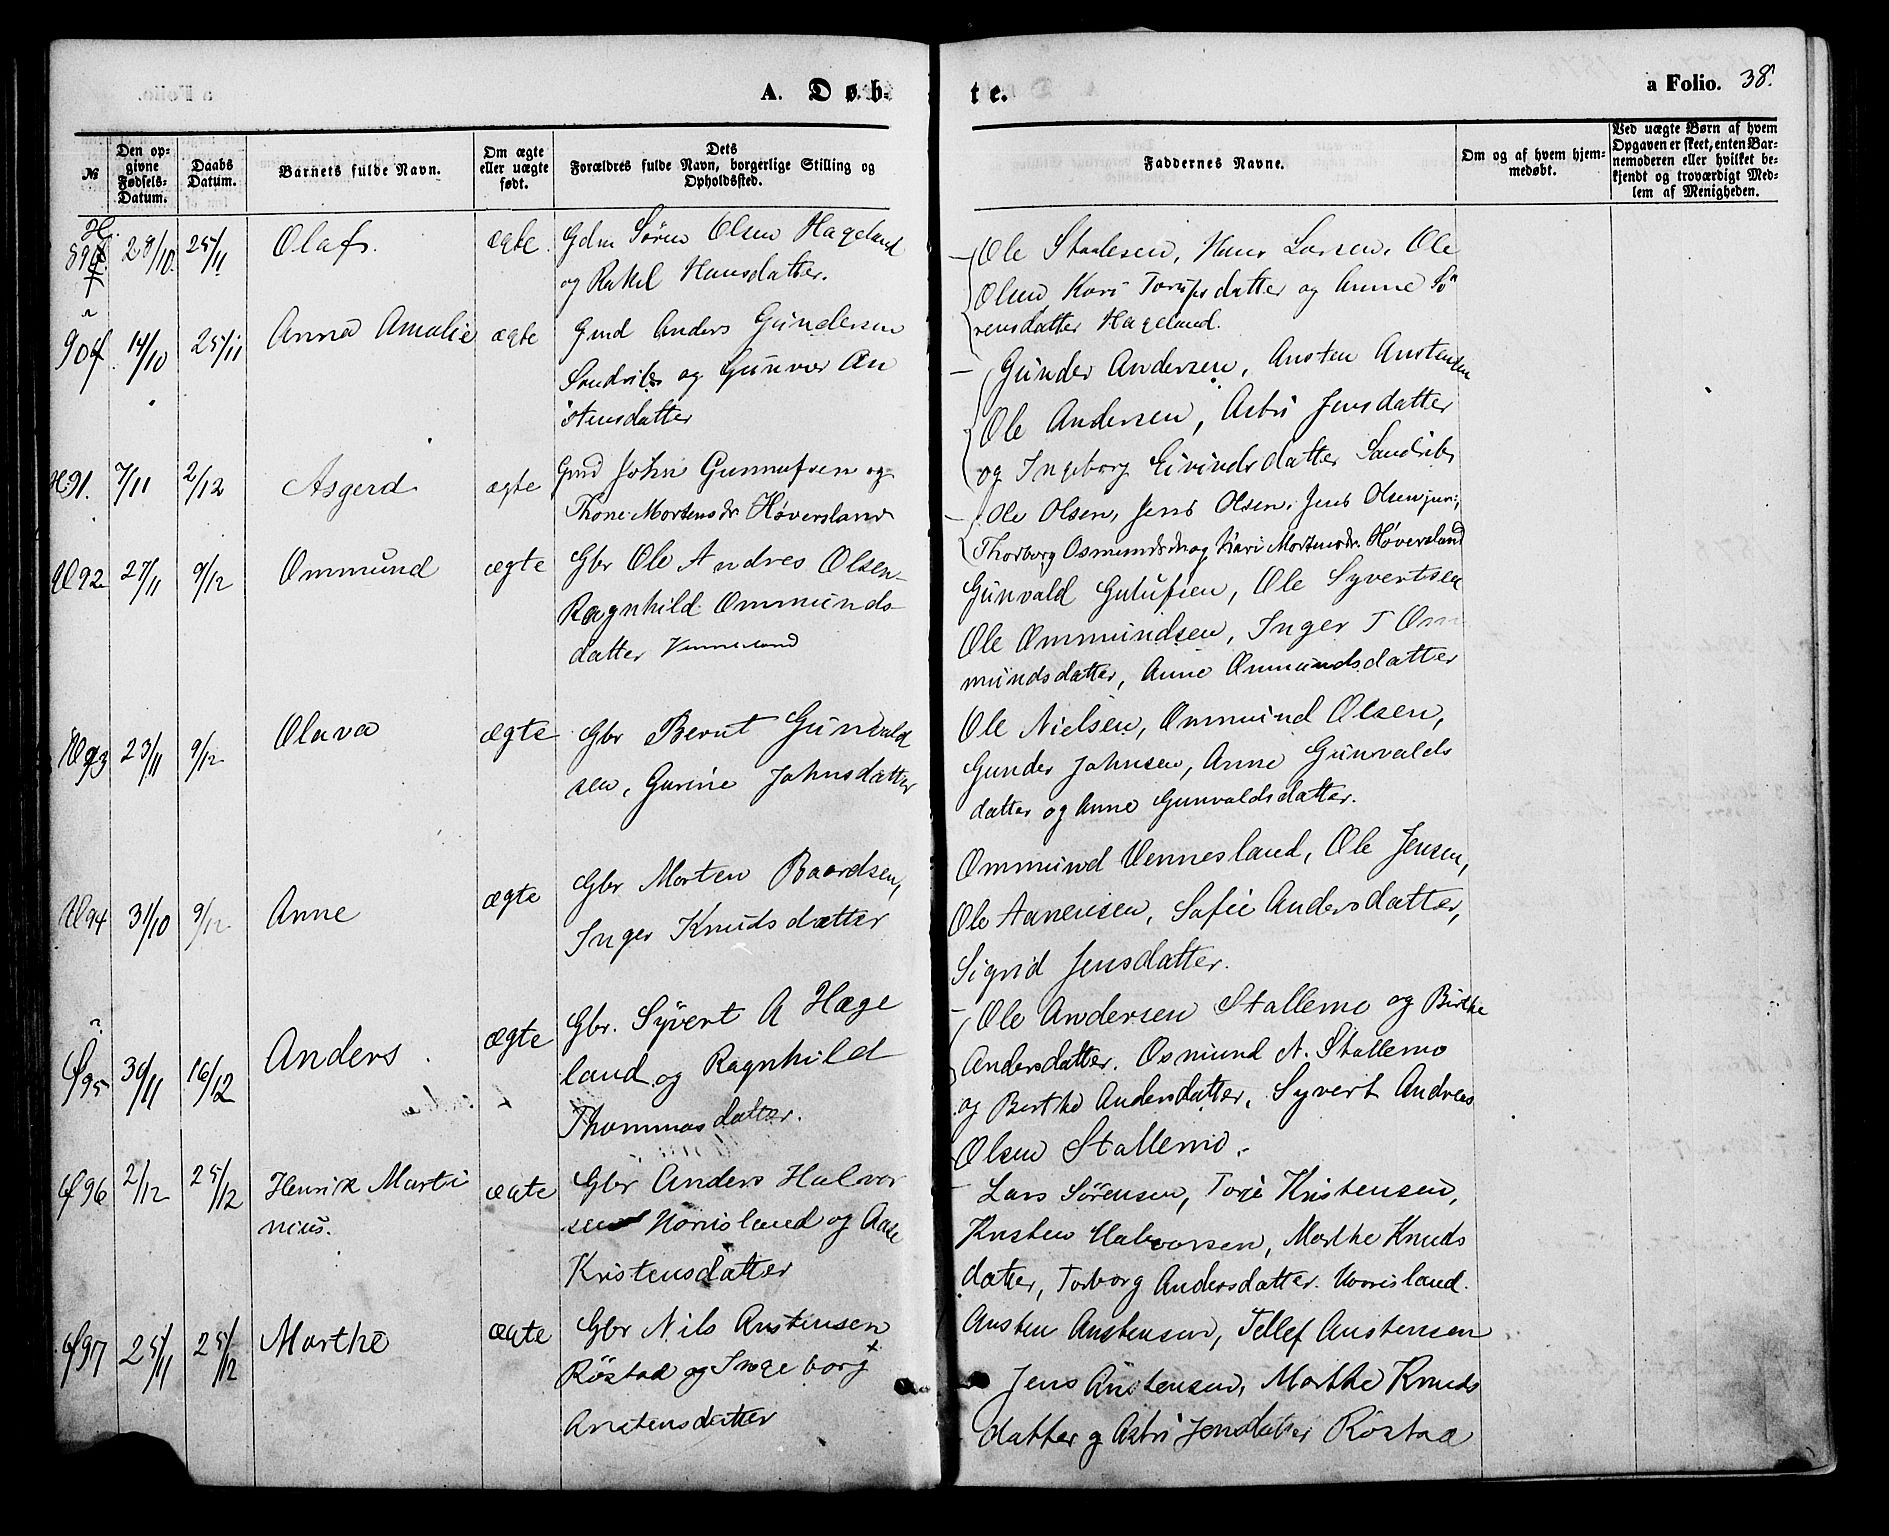 A. Døb-
te.
a Folio. 38.
№
Den op-
givne
Fødsels-
Datum.
Daabs
Datum.
Barnets fulde Navn.
Om ægte
eller uægte
født.
Dets
Forældres fulde Navn, borgerlige Stilling og
Opholdssted.
Faddernes Navne.
Om og af hvem hjem-
medøbt.
Ved uægte Børn af hvem
Opgaven er skeet, enten Bar-
nemoderen eller hvilket be-
kjendt og troværdigt Med-
lem af Menigheden.
89 28/10. 25/11 Olaf. ægte. Gdm Søren Olsen Hageland
og Rakel Hansdatter.
Ole Staalesen, Hans Larsen, Ole
Olsen Kari Torjusdatter og Anne Sö
rensdatter Hageland.
90 14/10 25/11 Anna Amalie ægte Gmd Anders Gundersen
Sandrib og Gunvor An
stensdatter
Gunder Andersen, Ansten Anstensen
Ole Andersen, Astri Jensdatter
og Ingeborg Eivindsdatter Sandrib
91. 7/11 2/12 Asgerd ægte Gmd John Gunnufsen og
Thone Mortensdr. Høversland
Ole Olsen, Jens Olsen, Jens Olsen jun.,
Thorborg Osmundsdr og Kari Mortensdr. Høversland
92 27/11 9/12 Ommund ægte Gbr Ole Andres Olsen
Ragnhild Ommunds-
datter Vennesland
Gunvald Gulufsen, Ole Syvertsen
Ole Ommundsen, Inger T Om
mundsdatter, Anne Ommundsdatter
93 23/11 9/12 Olava ægte Gbr Bernt Gunvald
sen, Gurine Johnsdatter
Ole Nielsen, Ommund Olsen,
Gunder Johnsen, Anne Gunvalds
datter og Anne Gunvaldsdatter.
94 31/10 9/12 Anne ægte Gbr Morten Baardsen,
Inger Knudsdatter
Ommund Vennesland, Ole Jensen,
Ole Aanensen, Sofie Andersdatter,
Sigrid Jensdatter.
95 30/11 16/12 Anders. ægte Gbr. Syvert A Hage
land og Ragnhild
Thommasdatter.
Ole Andersen Stallemo og Birthe
Andersdatter. Osmund A. Stallemo
og Birthe Andersdatter, Syvert Andreas
Olsen Stallemo.
96 2/12 25/12 Henrik Marti
nius. ægte Gbr Anders Halvor
sen Honisland og Aase
Kristensdatter
Lars Sørensen, Torje Kristensen,
Kristen Halvorsen, Marthe Knuds
datter, Torborg Andersdatter. Honisland.
97 25/11 25/12 Marthe ægte Gbr Nils Anstensen
Røstad og Ingeborg +
Anstensdatter
Ansten Anstensen, Tellef Anstensen
Jens Anstensen, Marthe Knuds
datter og Astri Jensdatter Røstad